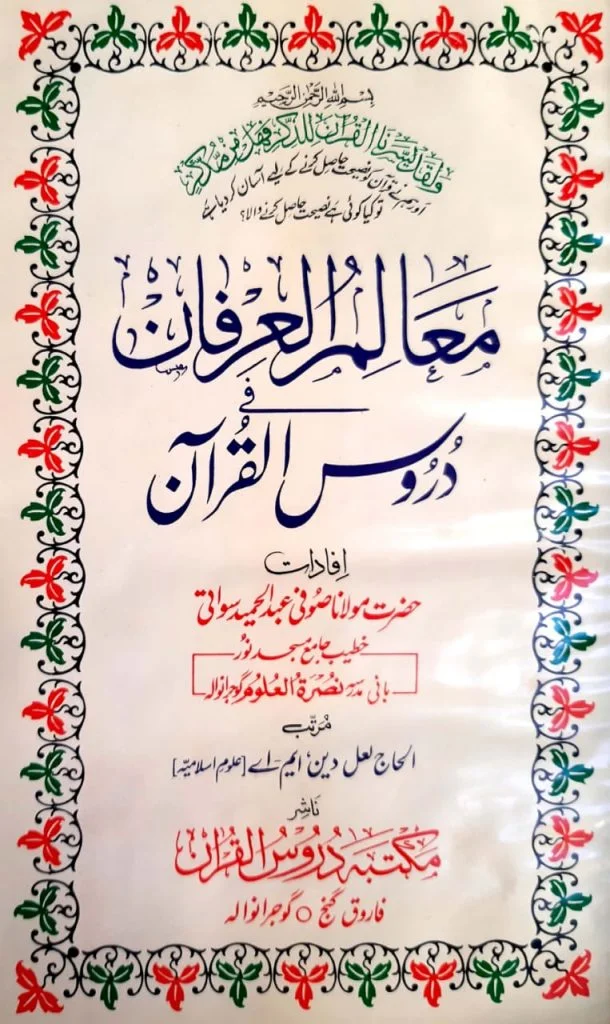 بِسْمِ اللهِ الرَّحْمٰنِ الرَّحِيْمِ
وَلَقَدْ يَسَّرْنَا الْقُرْآنَ لِلذِّكْرِ فَهَلْ مِنْ مُّدَّكِرٍ
اور ہم نے قرآن کو نصیحت حاصل کرنے کے لیے آسان کر دیا ہے
تو کیا کوئی ہے نصیحت حاصل کرنے والا؟
مَعَالِمُ الْعِرْفَان
فِی
دُرُوسِ الْقُرْآن
اِفادات
حضرت مولانا صوفی عبدالحمید سواتی
خطیب جامع مسجد نور
بانی مدرسہ نصرۃ العلوم گوجرانوالہ
مُرتّب
الحاج لعل دین، ایم-اے [علومِ اسلامیہ]
ناشر
مکتبہ دُرُوسُ القُرآن
فاروق گنج ○ گوجرانوالہ